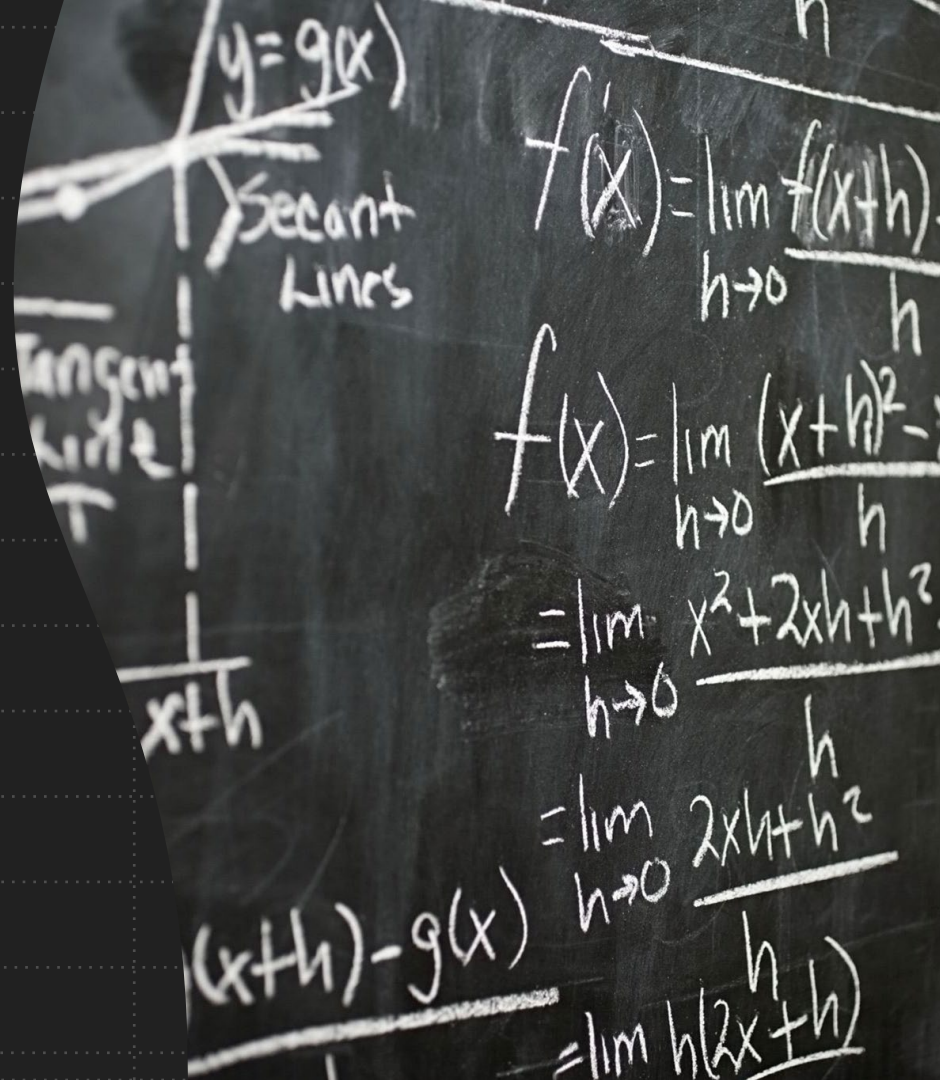 y = g(x)
Secant
Lines
Tangent
Line
T
x+h
(x+h) - g(x)
h
f'(x) = lim f(x+h)
h→0 h
f(x) = lim (x+h)² -
h→0 h
= lim x² + 2xh + h²
h→0 h
= lim 2xh + h²
h→0 h
= lim h(2x+h)